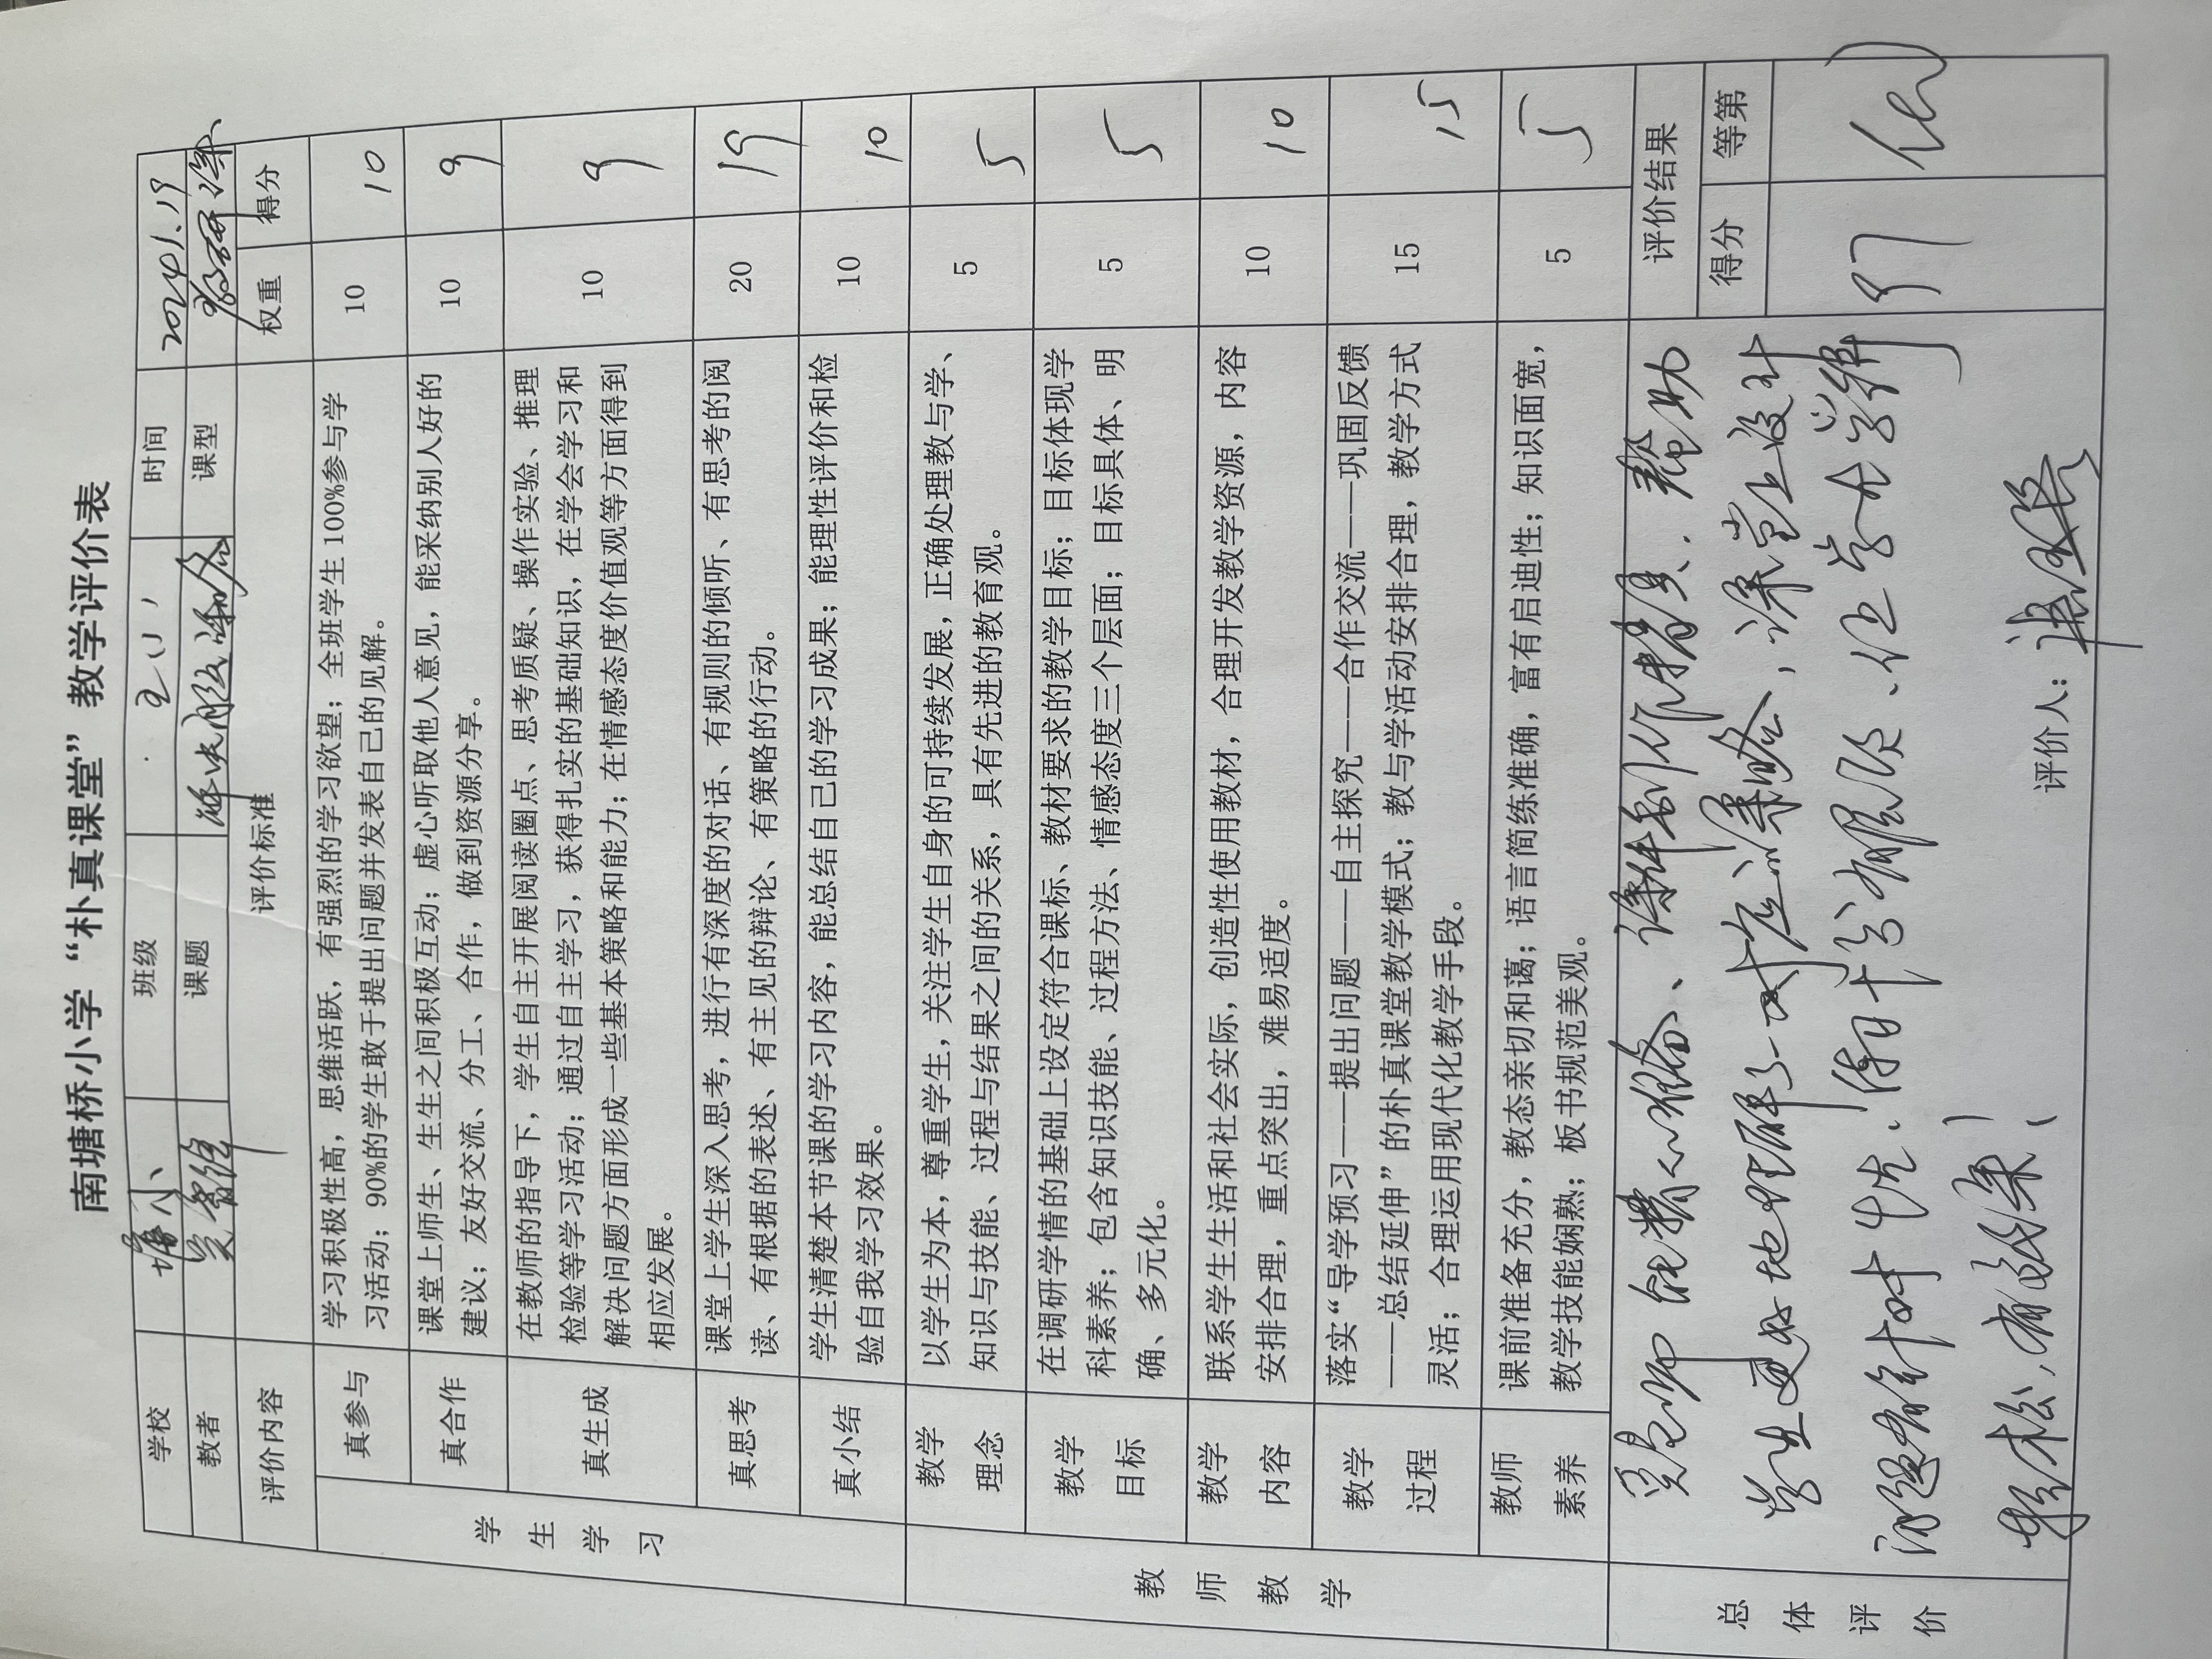 南塘桥小学“朴真课堂”教学评价表
学校 塘小 班级 时间 2024.1.19
教者 课题 解决问题 课型
评价内容 评价标准 权重 得分
学生学习
真参与 学习积极性高，思维活跃，有强烈的学习欲望；全班学生100%参与学 10 10
习活动；90%的学生敢于提出问题并发表自己的见解。
真合作 课堂上师生、生生之间积极互动；虚心听取他人意见，能采纳别人好的 10 9
建议；友好交流、分工、合作，做到资源分享。
真生成 在教师的指导下，学生自主开展阅读圈点、思考质疑、操作实验、推理 10 9
检验等学习活动；通过自主学习，获得扎实的基础知识，在学会学习和
解决问题方面形成一些基本策略和能力；在情感态度价值观等方面得到
相应发展。
真思考 课堂上学生深入思考，进行有深度的对话、有规则的倾听、有思考的阅 20 19
读、有根据的表述、有主见的辩论、有策略的行动。
真小结 学生清楚本节课的学习内容，能总结自己的学习成果；能理性评价和检 10 10
验自我学习效果。
教师教学
教学理念 以学生为本，尊重学生，关注学生自身的可持续发展，正确处理教与学、 5 5
知识与技能、过程与结果之间的关系，具有先进的教育观。
教学目标 在调研学情的基础上设定符合课标、教材要求的教学目标；目标体现学 5 5
科素养；包含知识技能、过程方法、情感态度三个层面；目标具体、明
确、多元化。
教学内容 联系学生生活和社会实际，创造性使用教材，合理开发教学资源，内容 10 10
安排合理，重点突出，难易适度。
教学过程 落实“导学预习——提出问题——自主探究——合作交流——巩固反馈 15 15
——总结延伸”的朴真课堂教学模式；教与学活动安排合理，教学方式
灵活；合理运用现代化教学手段。
教师素养 课前准备充分，教态亲切和蔼；语言简练准确，富有启迪性；知识面宽， 5 5
教学技能娴熟；板书规范美观。
总体评价
评价结果
得分 等第
97 优
吴老师能精心准备、课件制作精良，帮助
学生更好地理解了一一对应策略，课堂上设计
问题有针对性，有层次，让学生学得
轻松，有效果！
评价人：